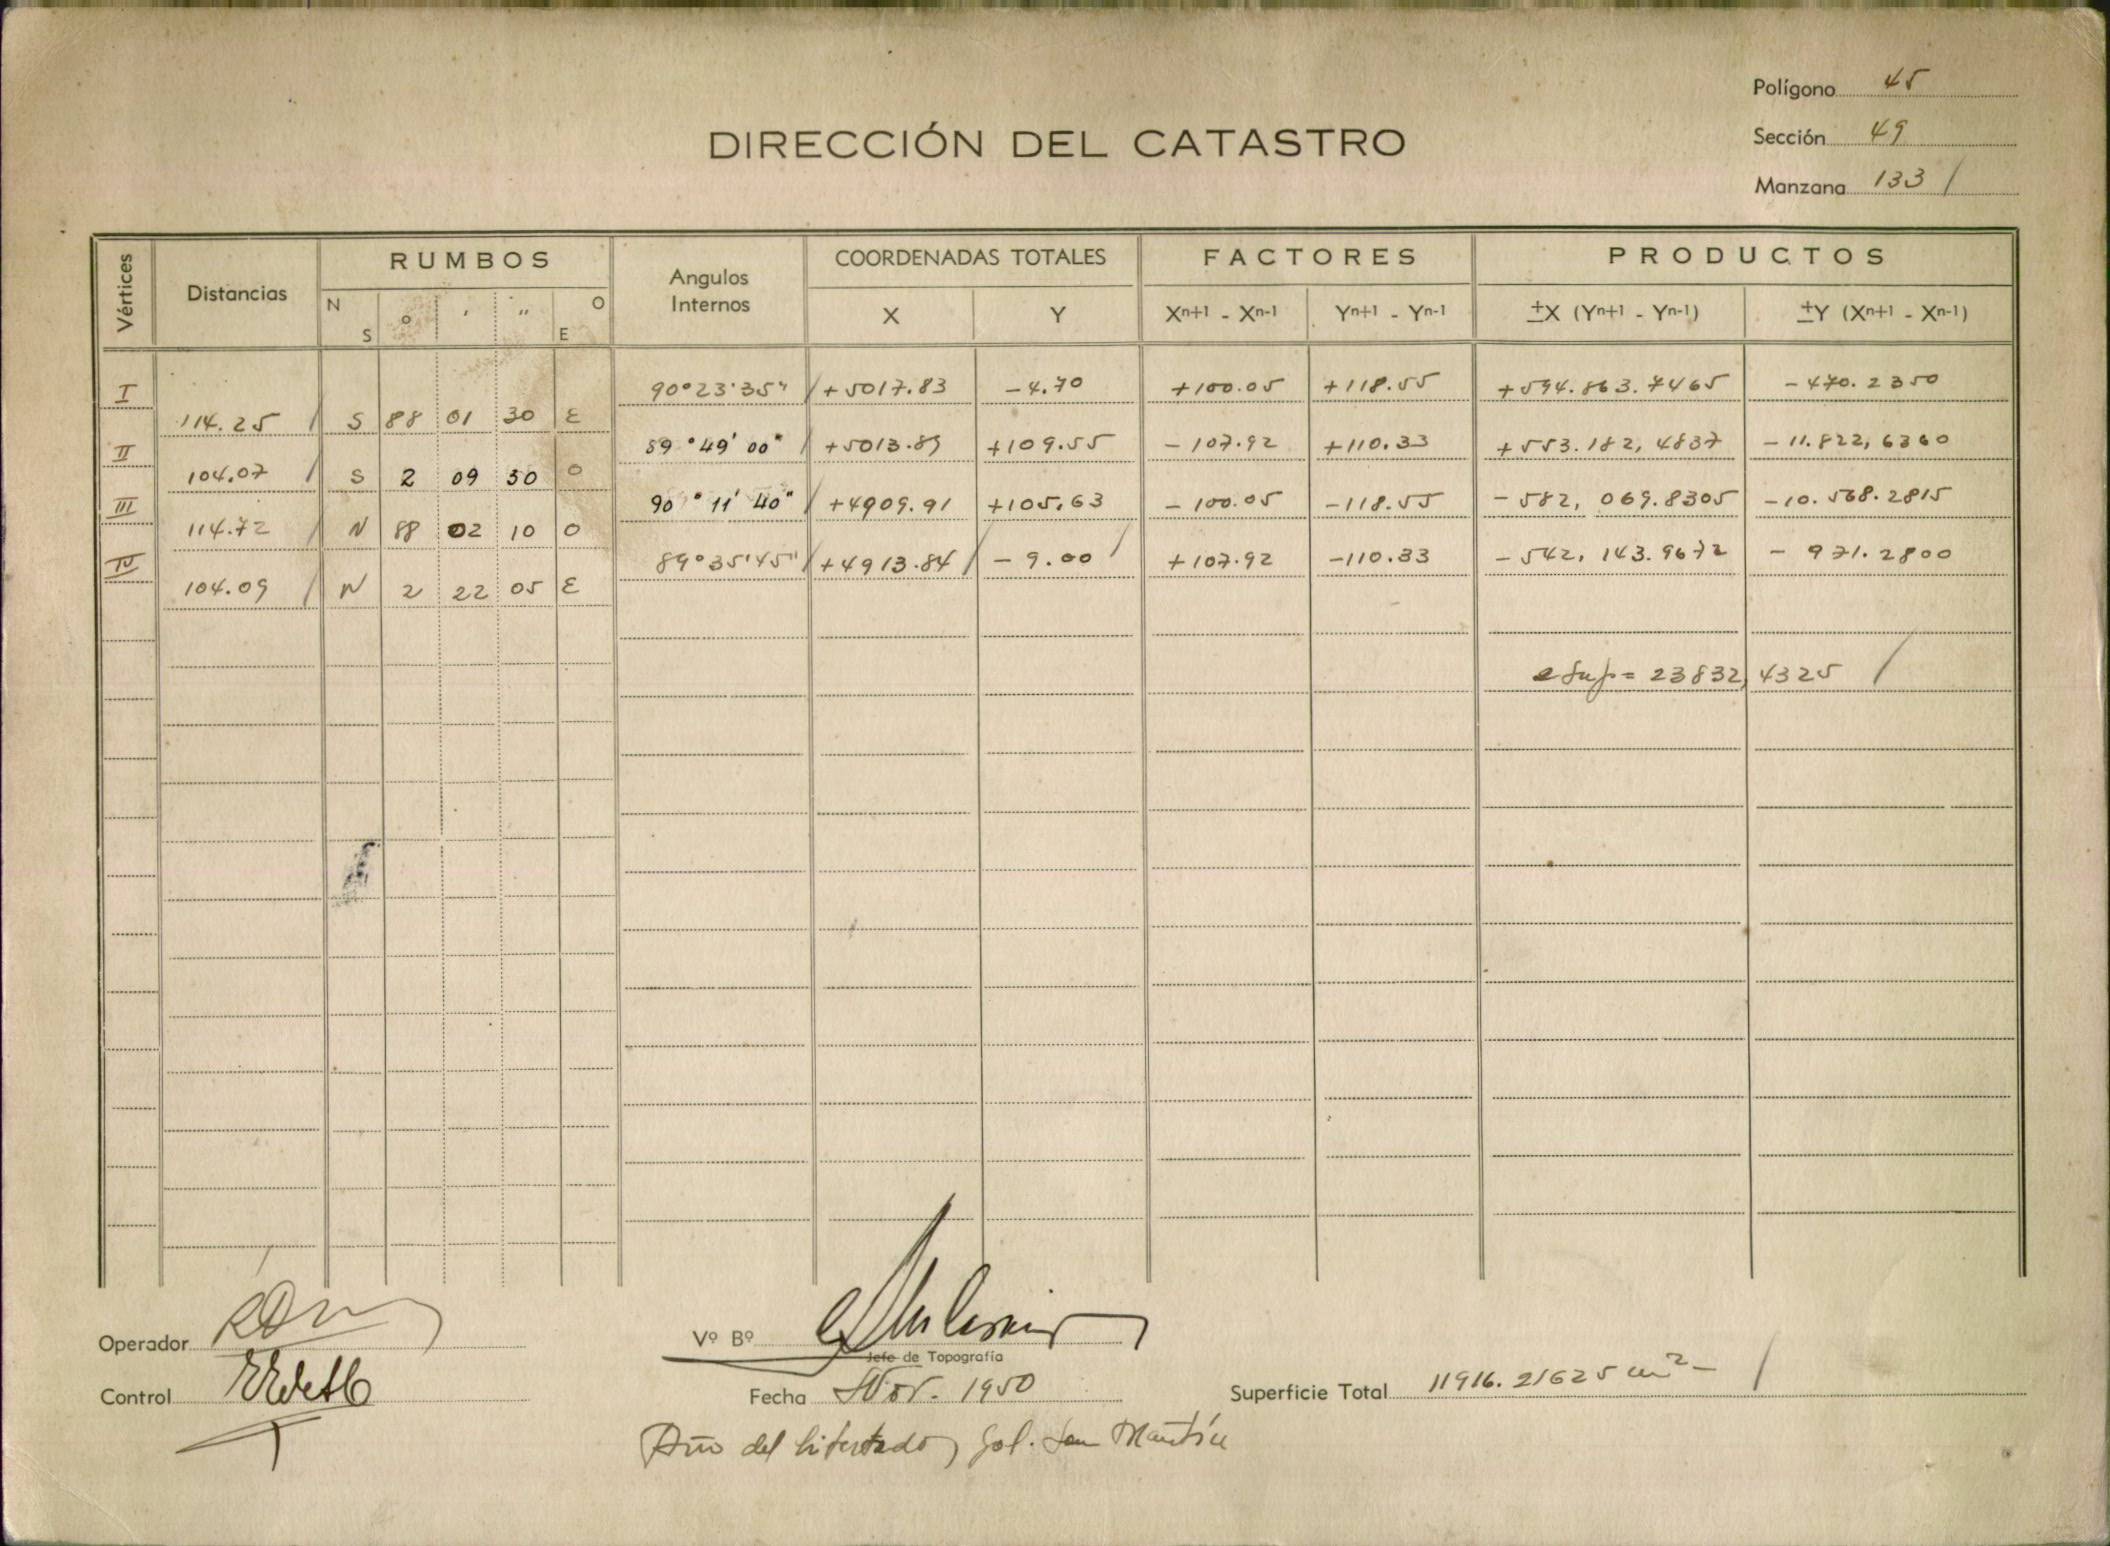 Polígono 45
DIRECCIÓN DEL CATASTRO
Sección 49
Manzana 133 /
Vértices Distancias RUMBOS Angulos Internos COORDENADAS TOTALES FACTORES PRODUCTOS
N S ° ' " O E X Y Xn+1 - Xn-1 Yn+1 - Yn-1 ±X (Yn+1 - Yn-1) ±Y (Xn+1 - Xn-1)
I 90°23'35" / +5017.83 -4.70 +100.05 +118.55 +594.863.7465 -470.2350
114.25 / S 88 01 30 E
II 89°49'00" / +5013.89 +109.55 -107.92 +110.33 +553.182,4837 -11.822,6360
104.07 / S 2 09 50 O
III 90°11'40" / +4909.91 +105.63 -100.05 -118.55 -582,069.8305 -10.568.2815
114.72 / N 88 02 10 O
IV 89°35'45" / +4913.84 / -9.00 / +107.92 -110.33 -542,143.9672 -971.2800
104.09 / N 2 22 05 E
2 Sup = 23832,4325 /
Operador
Vº Bº
Jefe de Topografía
Control
Fecha Nov. 1950
Superficie Total 11916.21625 m2 - /
Año del Libertador Gol. San Martín